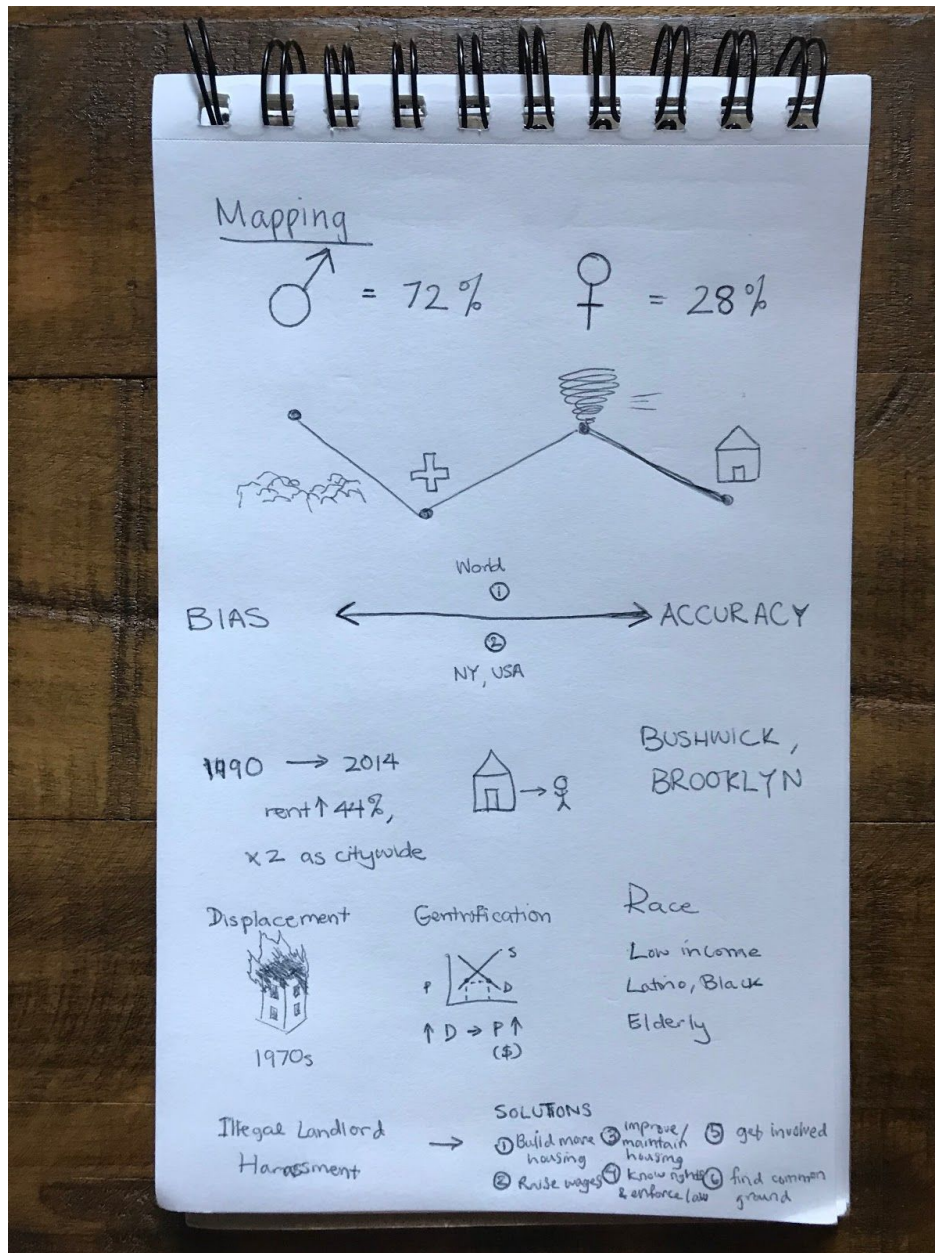 Mapping
= 72%
= 28%
World
①
BIAS
ACCURACY
②
NY, USA
1990 → 2014
rent ↑ 44%,
x2 as citywide
BUSHWICK,
BROOKLYN
Displacement
1970s
Gentrification
S
P
D
↑ D → P ↑
($)
Race
Low income
Latino, Black
Elderly
Illegal Landlord
Harassment
→
SOLUTIONS
① Build more
housing
② Raise wages
③ improve/
maintain
housing
④ know rights
& enforce law
⑤ get involved
⑥ find common
ground